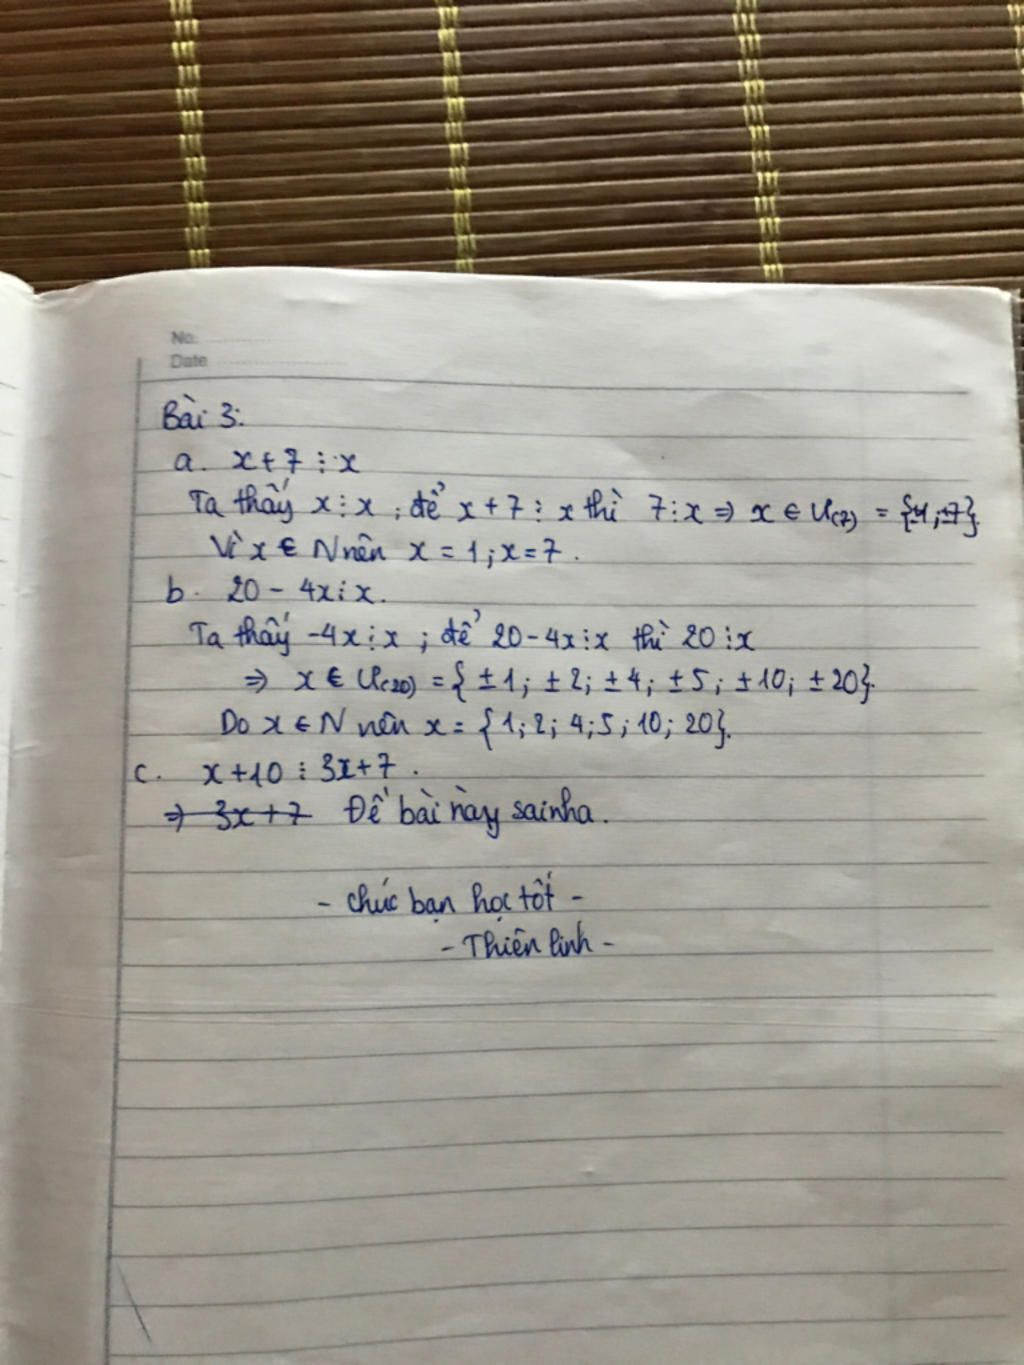 No.
Date
Bài 3:
a. x+7 ⋮ x
Ta thấy x ⋮ x ; để x + 7 ⋮ x thì 7 ⋮ x ⇒ x ∈ Ư(7) = {±1; ±7}.
Vì x ∈ N nên x = 1; x = 7.
b. 20 - 4x ⋮ x.
Ta thấy -4x ⋮ x ; để 20 - 4x ⋮ x thì 20 ⋮ x
⇒ x ∈ Ư(20) = { ±1; ±2; ±4; ±5; ±10; ±20}.
Do x ∈ N nên x = {1; 2; 4; 5; 10; 20}.
c. x+10 ⋮ 3x+7.
⇒ 3x+7 Đề bài này sai nha.
- chúc bạn học tốt -
- Thiên linh -